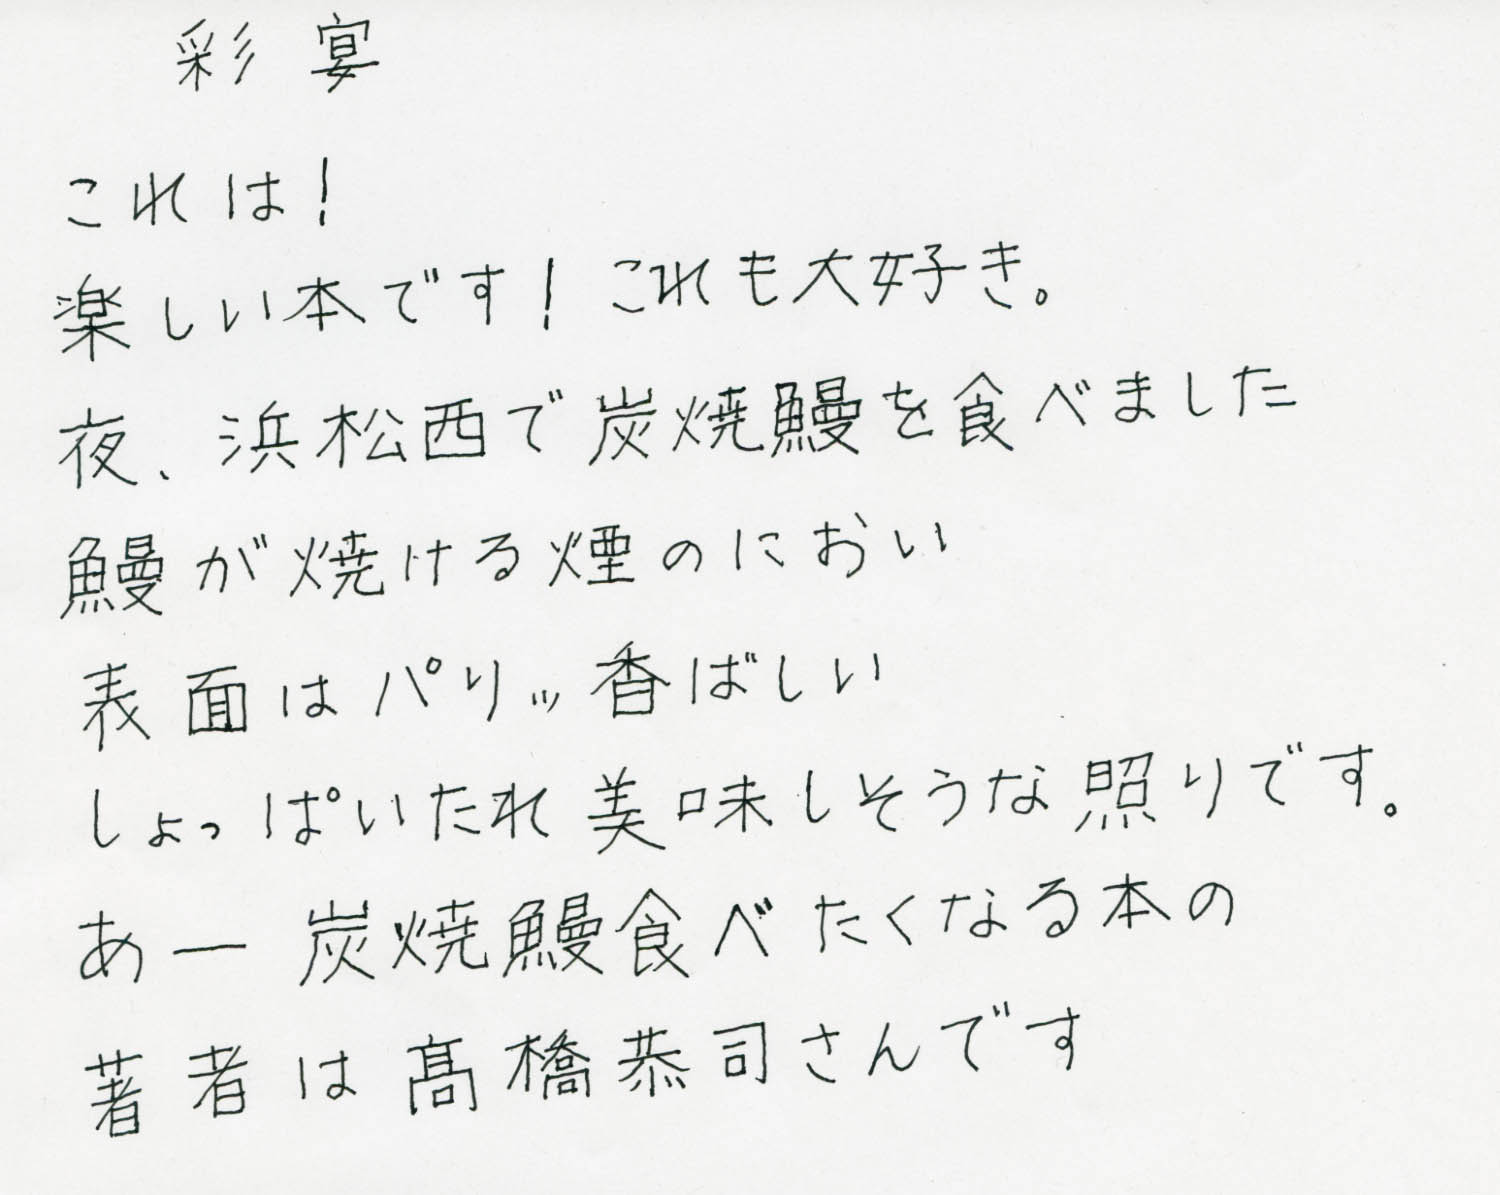 彩宴
これは!
楽しい本です!これも大好き。
夜、浜松西で炭焼鰻を食べました
鰻が焼ける煙のにおい
表面はパリッ香ばしい
しょっぱいたれ美味しそうな照りです。
あー炭焼鰻食べたくなる本の
著者は髙橋恭司さんです